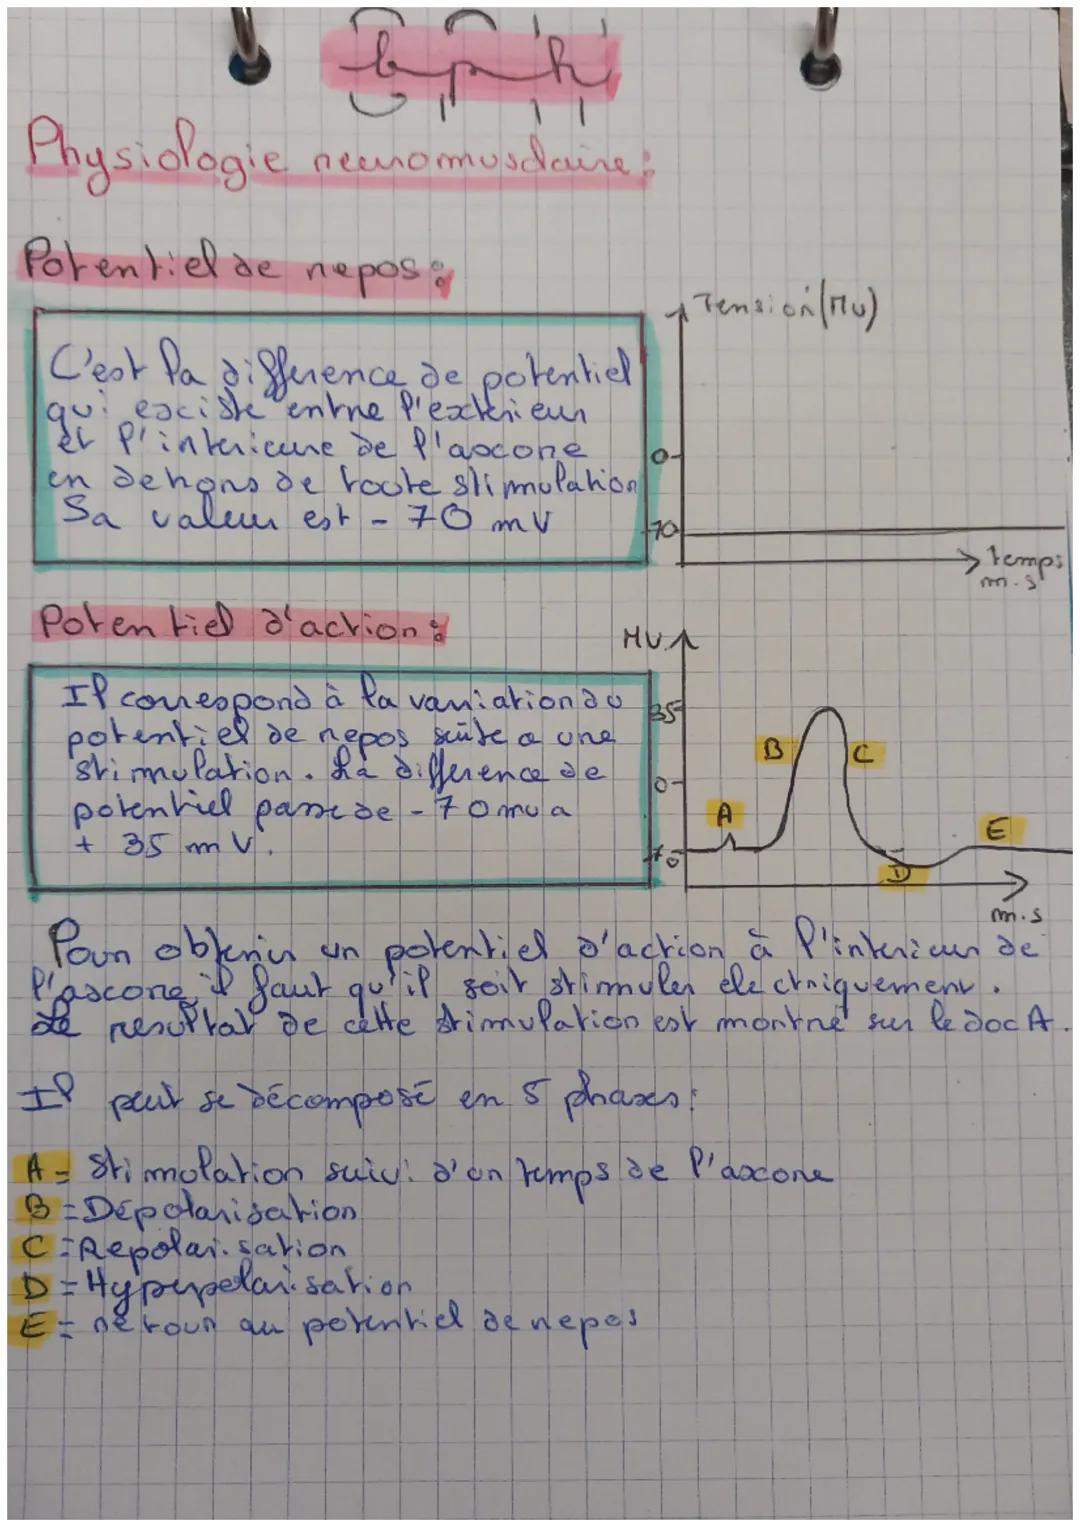 bph
Physiologie neuromusclaire :
Potentiel de repos :
Tension (Mv)
C'est la difference de potentiel
qui exciste entre l'exterieur
et l'interieure de l'axcone
en dehors de toute stimulation
Sa valeur est - 70 mV
0
-70
temps
m.s
Potentiel d'action :
Mv
Il correspond à la variation du
potentiel de repos suite a une
stimulation. La difference de
potentiel passe de - 70 mv a
+ 35 mV.
35
0
-70
A
B
C
D
E
m.s
Pour obtenir un potentiel d'action à l'interieur de
l'axcone il faut qu'il soit stimuler electriquement.
Le resultat de cette stimulation est montré sur le doc A.
Il peut se décomposé en 5 phases :
A = Stimulation suivi d'un temps de l'axcone
B = Dépolarisation
C = Repolarisation
D = Hyperpolarisation
E = retour au potentiel de repos